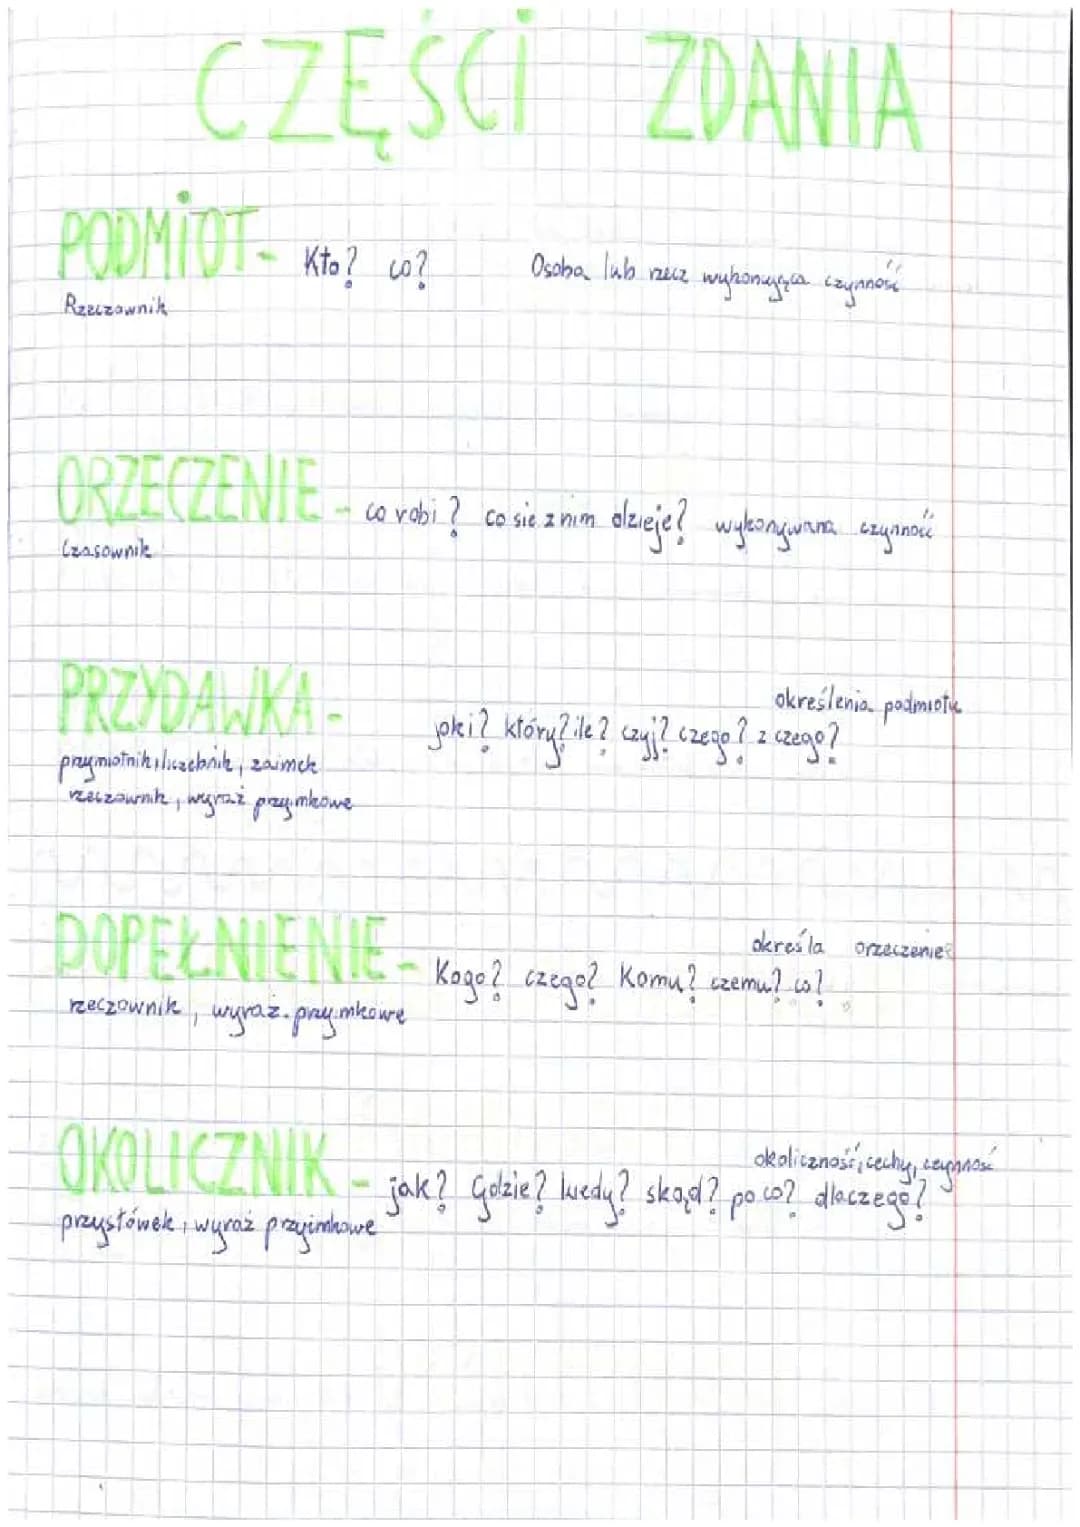 CZĘŚCI ZDANIA
PODMIOT - Kto? co? Osoba lub rzecz wykonująca czynność
Rzeczownik
ORZECZENIE - co robi? co sie z nim dzieje? wykonywana czynność
Czasownik
określenia podmiotu
PRZYDAWKA - jaki? który? ile? czyj? czego? z czego?
przymiotnik, liczebnik, zaimek
rzeczownik, wyraż przyimkowe
określa orzeczenie
DOPEŁNIENIE - Kogo? czego? Komu? czemu? co?
rzeczownik, wyraż. przyimkowe
okoliczność, cechy, czynność
OKOLICZNIK - jak? Gdzie? kiedy? skąd? po co? dlaczego?
przysłówek, wyraż przyimkowe